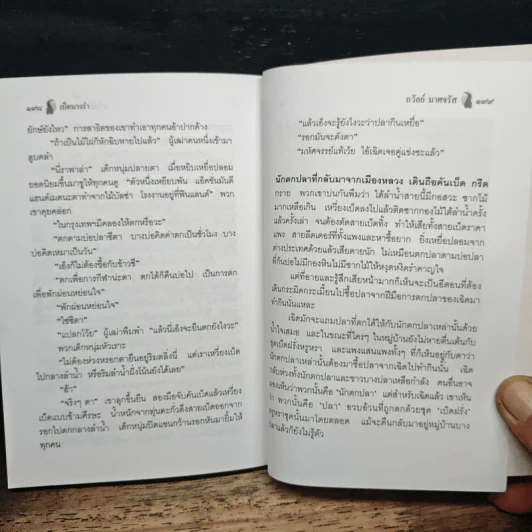 ๑๙๘ เบ็ดนางรำ
ยักษ์ยังไหว” การสาธิตของเขาทำเอาทุกคนอ้าปากค้าง
“ถ้าเป็นไม้ไผ่ก็หักฉิบหายไปแล้ว” ผู้เฒ่าคนหนึ่งเข้ามา
ลูบคลำ
“นี่ราพาล่า” เด็กหนุ่มปลายตา เมื่อหยิบเหยื่อปลอม
ยอดนิยมขึ้นมาชูให้ทุกคนดู “ตัวหนึ่งเหยียบพัน แอ็คชั่นมันดี
แฮนด์เมดนะตาทำจากไม้บัลซ่า โรงงานอยู่ที่ฟินแลนด์” พวก
เขาคุยคล่อง
“ในกรุงเทพฯมีคลองให้ตกหรือวะ”
“ตกตามบ่อปลาซีตา บางบ่อคิดค่าตกเป็นชั่วโมง บาง
บ่อคิดเหมาเป็นวัน”
“เอ็งก็ไม่ต้องซื้อกับข้าวซี”
“ตกเพื่อการกีฬาน่ะตา ตกได้ก็คืนบ่อไป เป็นการตก
เพื่อพักผ่อนหย่อนใจ”
“พักผ่อนหย่อนใจ”
“ใช่ซีตา”
“แปลกโว้ย” ผู้เฒ่าพึมพำ “แล้วนี่เอ็งจะยืนตกยังไงวะ”
พวกเด็กหนุ่มหัวเราะ
“ไม่ต้องห่วงหรอกตายืนอยู่ริมตลิ่งนี่ แต่เราเหวี่ยงเบ็ด
ไปกลางลำน้ำ หรือริมลำน้ำฝั่งโน้นยังได้เลย”
“ฮ้า”
“จริงๆ ตา” เขาลุกขึ้นยืน สองมือจับคันเบ็ดแล้วเหวี่ยง
เบ็ดแบบข้ามศีรษะ น้ำหนักจากทุ่นตะกั่วดึงสายเบ็ดออกจาก
รอกไปตกกลางลำน้ำ เด็กหนุ่มปิดแขนกว้านรอกหันมายิ้มให้
ทุกคน
ถวัลย์ มาศจรัส ๑๙๙
“แล้วเอ็งจะรู้ยังไงวะว่าปลากินเหยื่อ”
“รอกมันจะดังตา”
“มหัศจรรย์แท้เว้ย ไอ้เฉิดเจอคู่แข่งซะแล้ว”
นักตกปลาที่กลับมาจากเมืองหลวง เดินถือคันเบ็ด กรีด
กราย พวกเขาบ่นกันพึมว่า ใต้ลำน้ำสายนี้มีกอสวะ ซากไม้
มากเหลือเกิน เหวี่ยงเบ็ดลงไปแล้วติดซากกองไม้ใต้ลำน้ำครั้ง
แล้วครั้งเล่า จนต้องตัดสายเบ็ดทิ้ง ทำให้เสียทั้งสายเบ็ดราคา
แพง สายลีดเดอร์ที่ทั้งแพงและหาซื้อยาก ยิ่งเหยื่อปลอมจาก
ต่างประเทศด้วยแล้วเสียดายนัก ไม่เหมือนตกปลาตามบ่อปลา
ที่ก้นบ่อไม่มีกองหินไม่มีซากไม้ให้หงุดหงิดรำคาญใจ
แต่ที่อายและรู้สึกเสียหน้ามากก็เห็นจะเป็นอีตอนที่ต้อง
เดินกระมิดกระเมี้ยนไปซื้อปลาจากฝีมือการตกปลาของเฉิดมา
ทำกินนั่นแหละ
เฉิดมักจะแถมปลาที่ตกได้ให้กับนักตกปลาเหล่านั้นด้วย
น้ำใจเสมอ และในขณะที่ใครๆ ในหมู่บ้านยังไม่หายตื่นเต้นกับ
ชุดเบ็ดฝรั่งหรูหรา และแพงแสนแพงทั้งๆ ที่เห็นอยู่กับตาว่า
นักตกปลาเหล่านั้นต้องมาซื้อปลาจากเฉิดไปทำกินนั้น เฉิด
กลับห่วงทั้งนักตกปลาและชาวบางปลาเหลือกำลัง คนอื่นอาจ
มองเห็นว่าพวกนั้นคือ ‘นักตกปลา’ แต่สำหรับเฉิดแล้ว เขาเห็น
ว่า พวกนั้นคือ ‘ปลา’ อวบอ้วนที่ถูกตกด้วยชุด ‘เบ็ดฝรั่ง’
หรูหราชุดนั้นมาโดยตลอด แม้จะคืนกลับมาอยู่หมู่บ้านบาง
ปลาแล้วก็ยังไม่รู้ตัว